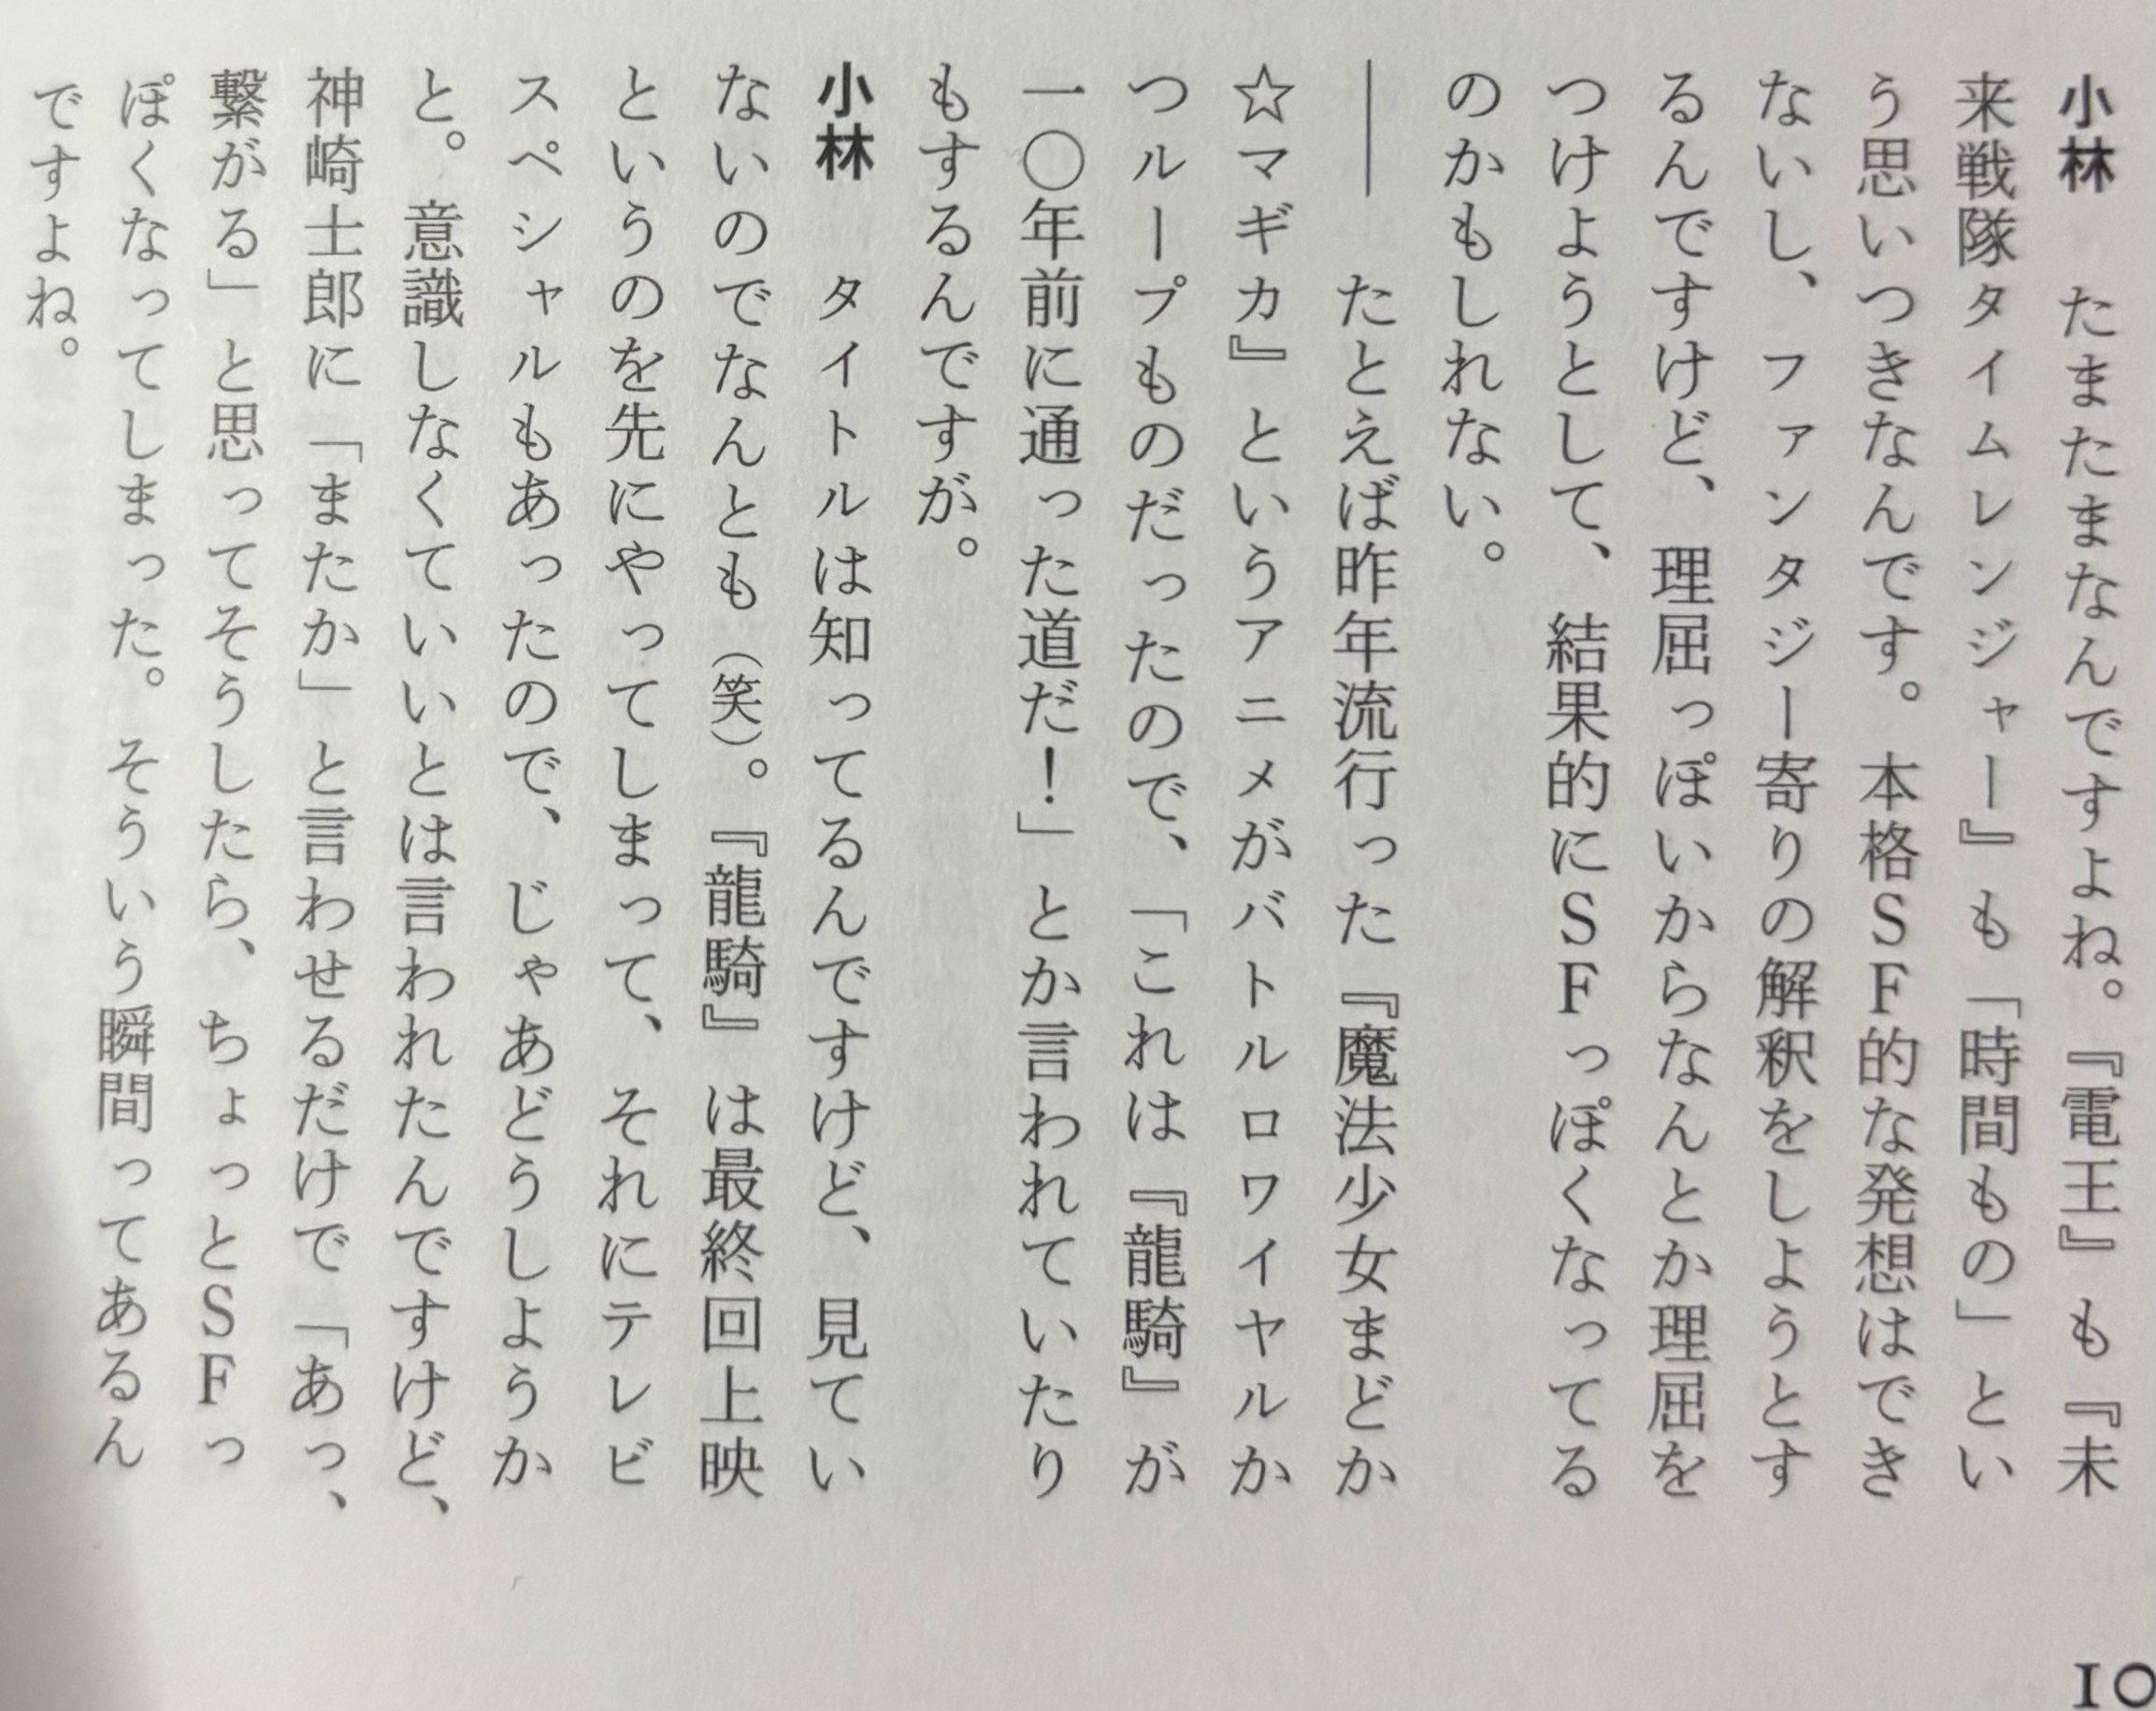 小林　たまたまなんですよね。『電王』も『未
来戦隊タイムレンジャー』も「時間もの」とい
う思いつきなんです。本格ＳＦ的な発想はでき
ないし、ファンタジー寄りの解釈をしようとす
るんですけど、理屈っぽいからなんとか理屈を
つけようとして、結果的にＳＦっぽくなってる
のかもしれない。
――　たとえば昨年流行った『魔法少女まどか
☆マギカ』というアニメがバトルロワイヤルか
つループものだったので、「これは『龍騎』が
一〇年前に通った道だ！」とか言われていたり
もするんですが。
小林　タイトルは知ってるんですけど、見てい
ないのでなんとも（笑）。『龍騎』は最終回上映
というのを先にやってしまって、それにテレビ
スペシャルもあったので、じゃあどうしようか
と。意識しなくていいとは言われたんですけど、
神崎士郎に「またか」と言わせるだけで「あっ、
繋がる」と思ってそうしたら、ちょっとＳＦっ
ぽくなってしまった。そういう瞬間ってあるん
ですよね。
10